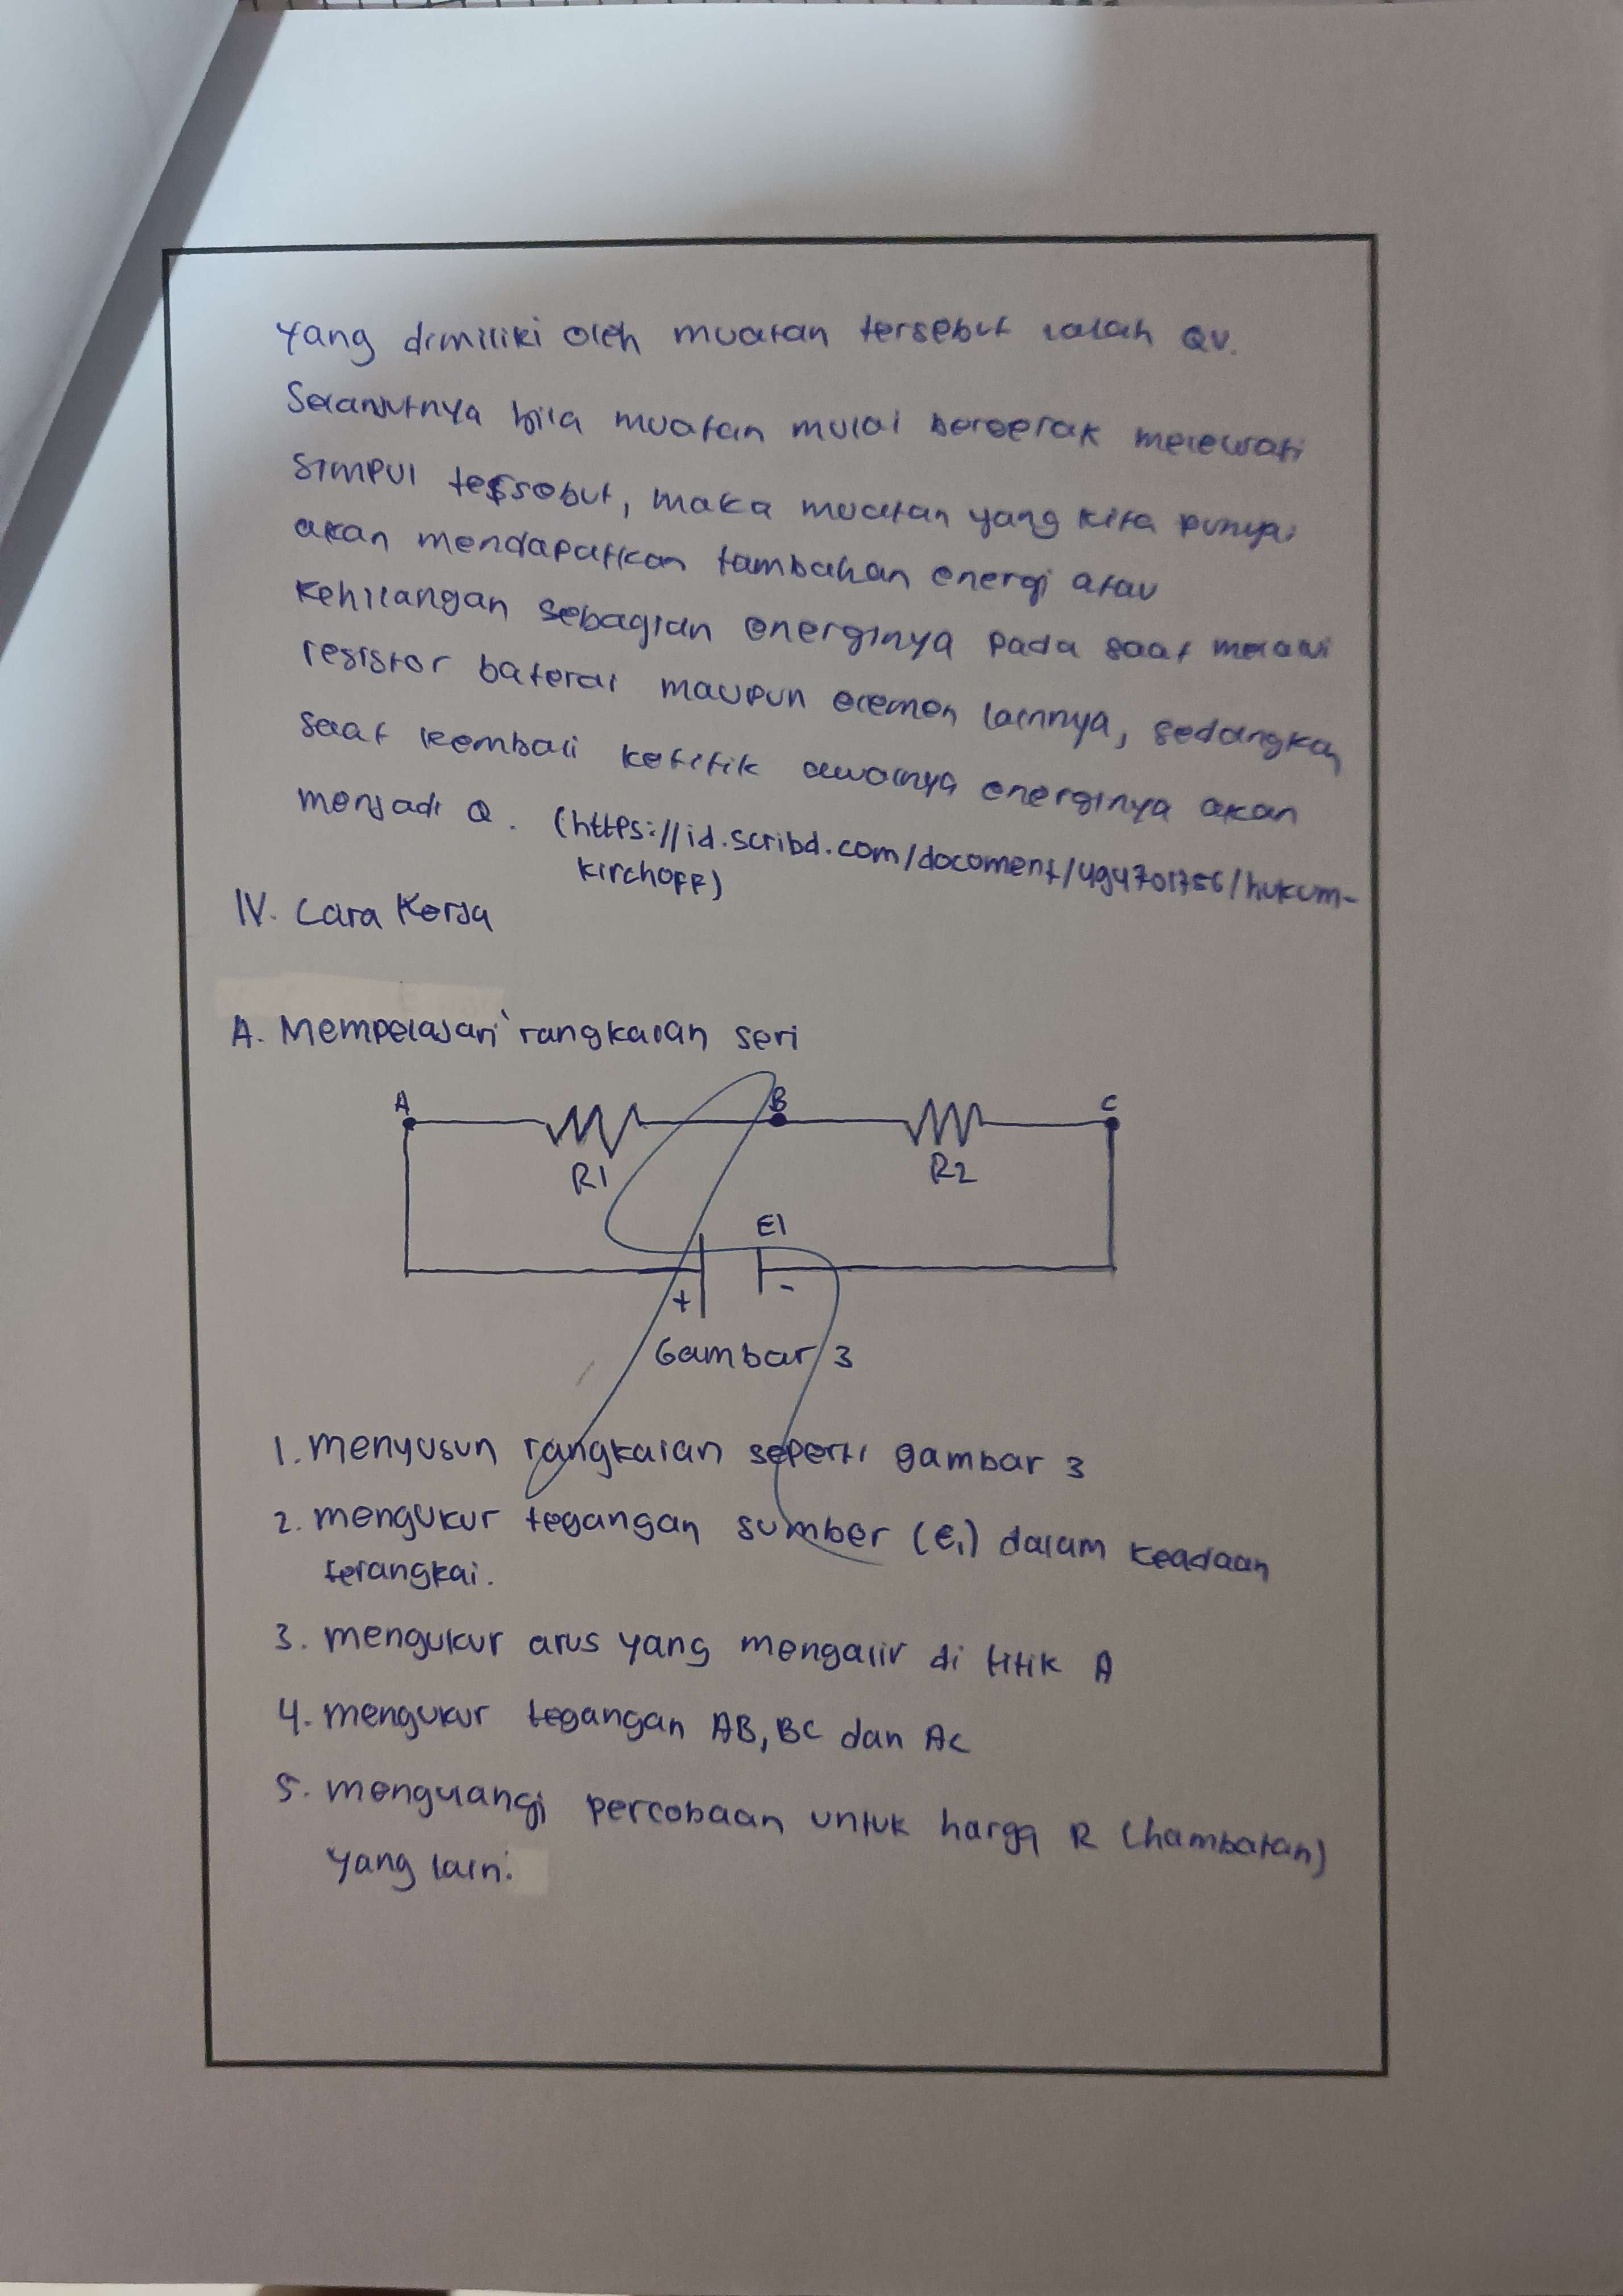 yang dimiliki oleh muatan tersebut ialah QV.
Selanjutnya bila muatan mulai bergerak melewati
simpul tersebut, maka muatan yang kita punyai
akan mendapatkan tambahan energi atau
kehilangan sebagian energinya pada saat melalui
resistor baterai maupun elemen lainnya, sedangkan
saat kembali ketitik awalnya energinya akan
menjadi Q. (https://id.scribd.com/document/494701756/hukum-
kirchoff)
IV. Cara Kerja
A. Mempelajari rangkaian seri
A B C
R1 R2
E1
+ -
Gambar 3
1. menyusun rangkaian seperti gambar 3
2. mengukur tegangan sumber (E1) dalam keadaan
terangkai.
3. mengukur arus yang mengalir di titik A
4. mengukur tegangan AB, BC dan AC
5. mengulangi percobaan untuk harga R (hambatan)
yang lain.